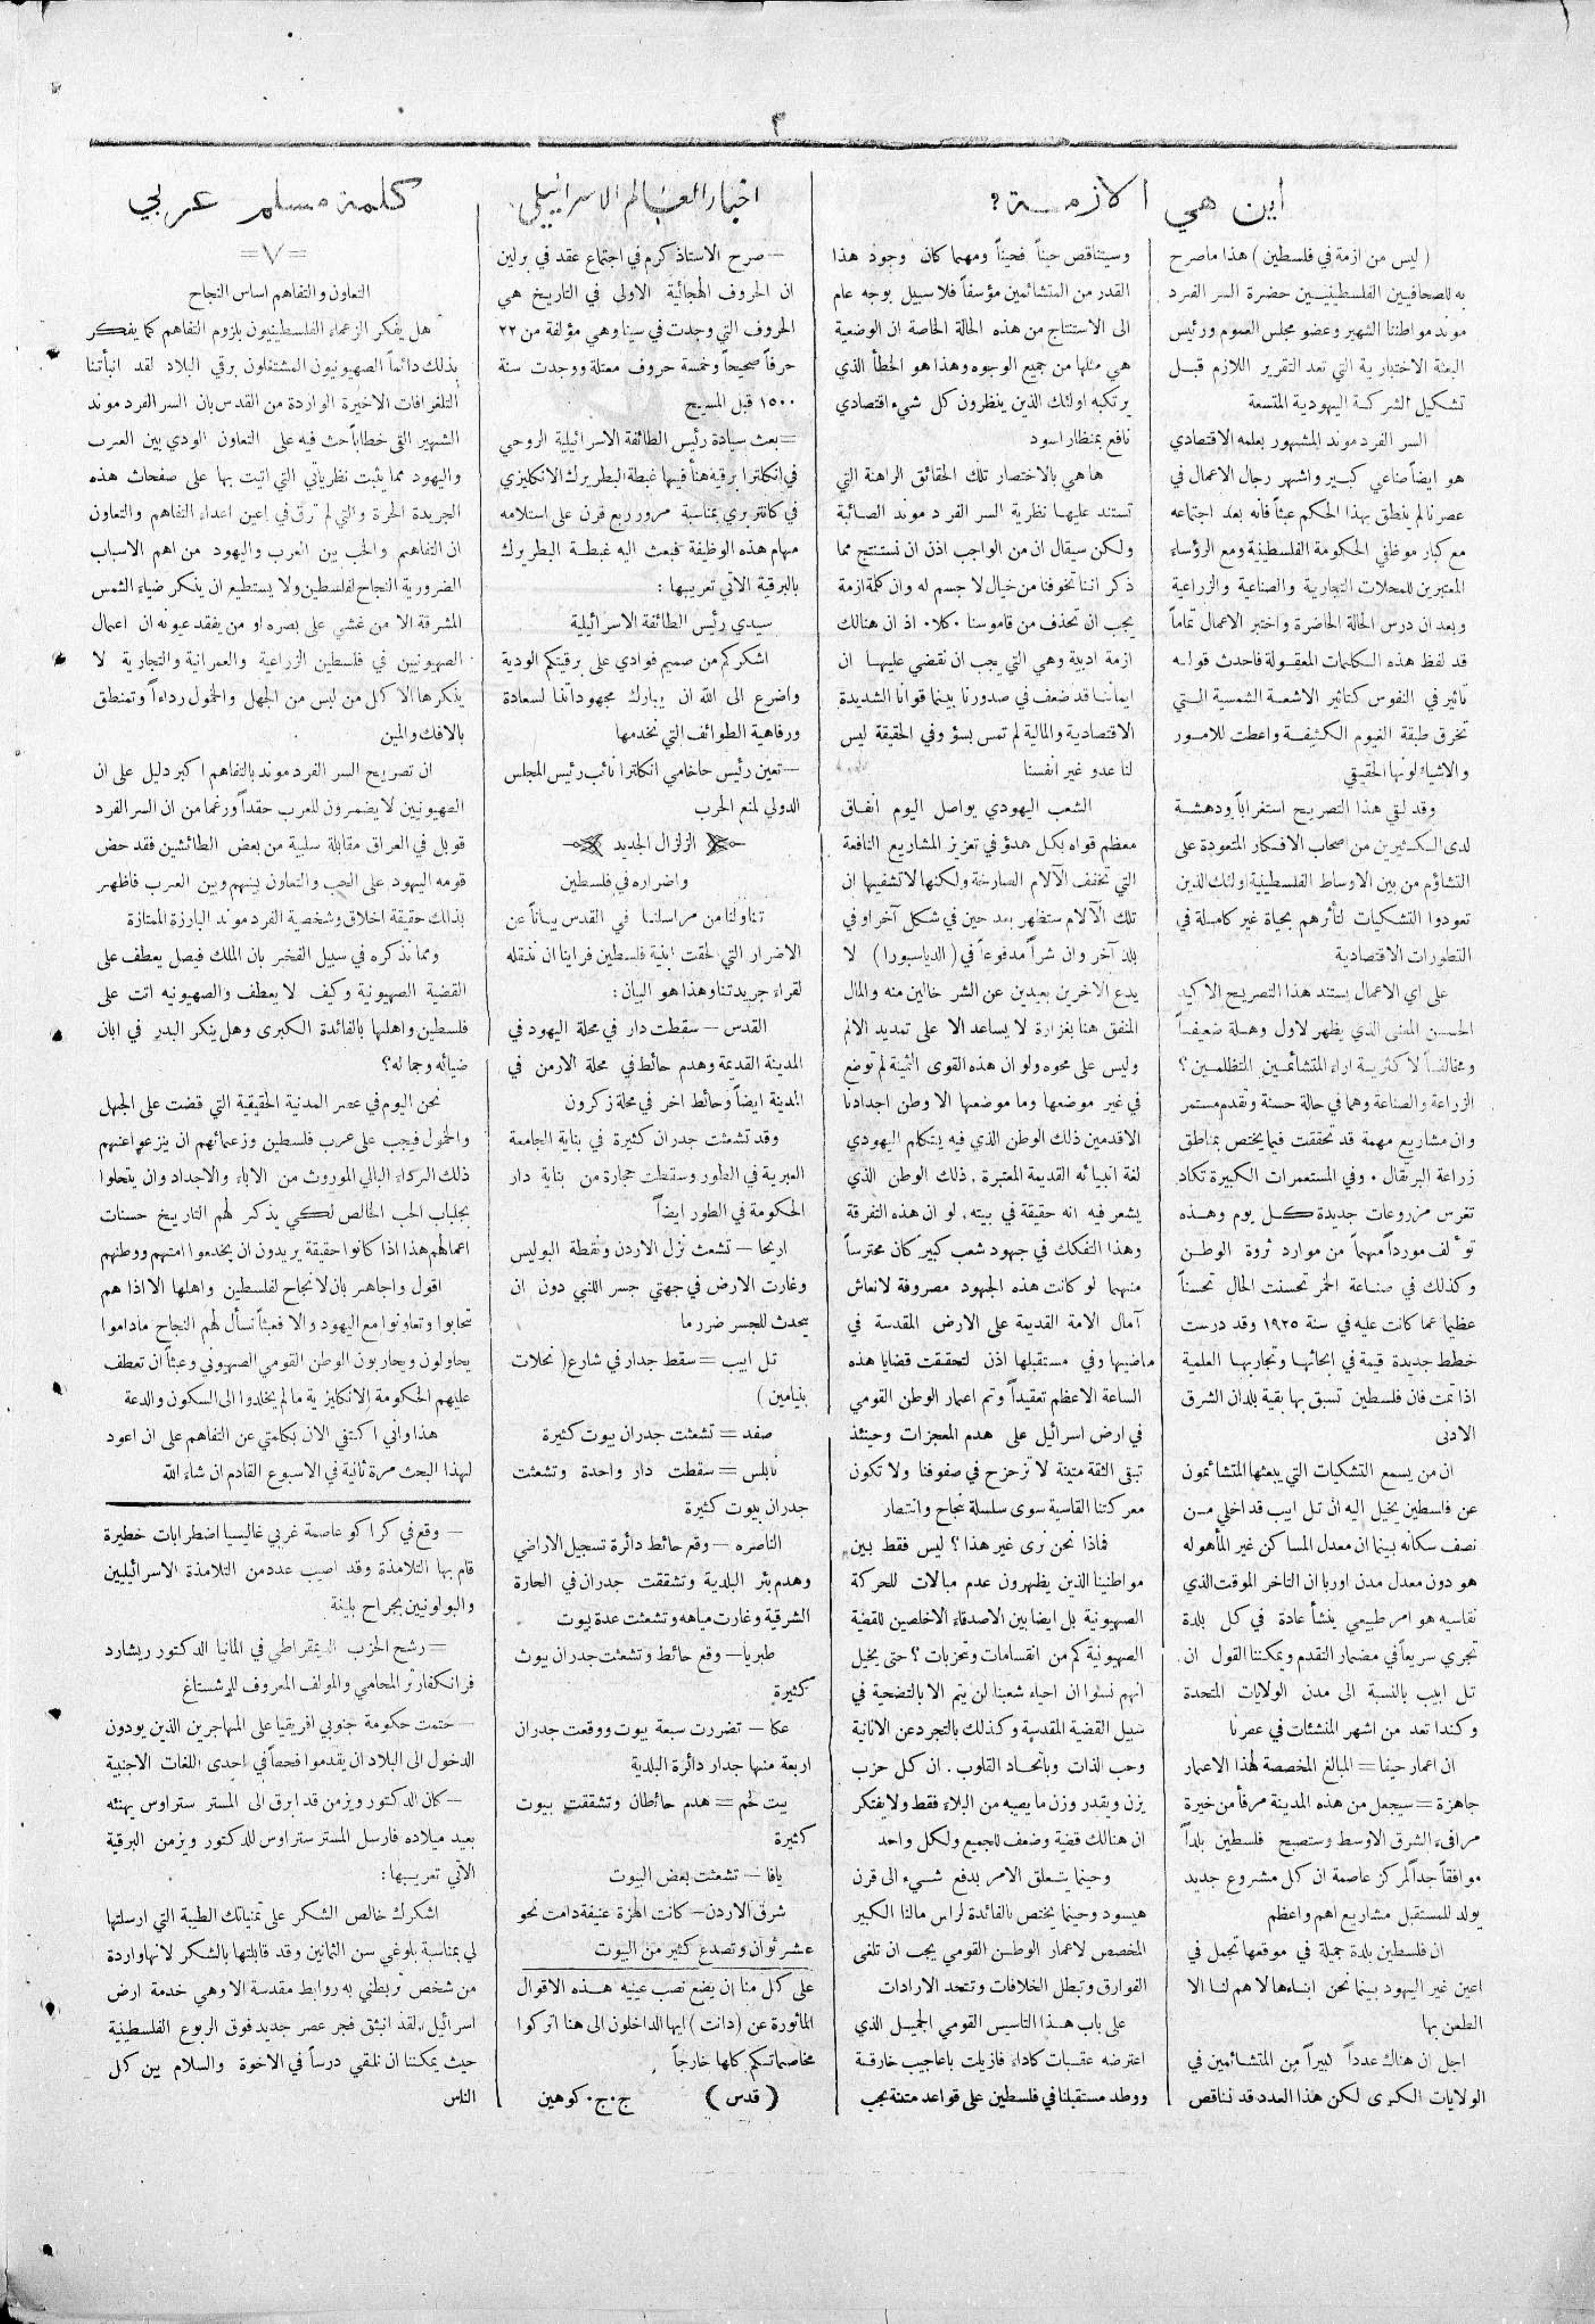 ٣
اين هي الازمة؟
( ليس من ازمة في فلسطين ) هذا ماصرح
به للصحافيين الفلسطينيين حضرة السر الفرد
موند مواطننا الشهير وعضو مجلس العموم ورئيس
البعثة الاختبارية التي تعد التقرير اللازم قبل
تشكيل الشركة اليهودية المتسعة
السر الفرد موند المشهور بعلمه الاقتصادي
هو ايضاً صناعي كبير واشهر رجال الاعمال في
عصرنا لم ينطق بهذا الحكم عبثاً فانه بعد اجتماعه
مع كبار موظفي الحكومة الفلسطينية ومع الرؤساء
المعتبرين للمحلات التجارية والصناعية والزراعية
وبعد ان درس الحالة الحاضرة واختبر الاعمال تماماً
قد لفظ هذه الكلمات المعقولة فاحدث قوله
تاثير في النفوس كتاثير الاشعة الشمسية التي
تخرق طبقة الغيوم الكثيفة واعطت للامور
والاشياء لونها الحقيقي
وقد لقي هذا التصريح استغراباً ودهشة
لدى الكثيرين من اصحاب الافكار المتعودة على
التشاؤم من بين الاوساط الفلسطينية اولئك الذين
تعودوا التشكيات لتأثرهم بحياة غير كاملة في
التطورات الاقتصادية
على اي الاعمال يستند هذا التصريح الاكيد
الحسن المعنى الذي يظهر لاول وهلة ضعيفاً
ومخالفاً لاكثرية اراء المتشائمين المتظلمين ؟
الزراعة والصناعة وهما في حالة حسنة وتقدم مستمر
وان مشاريع مهمة قد تحققت فيما يختص بمناطق
زراعة البرتقال . وفي المستعمرات الكبيرة تكاد
تغرس مزروعات جديدة كل يوم وهذه
تؤلف مورداً مهماً من موارد ثروة الوطن
وكذلك في صناعة الخمر تحسنت الحال تحسناً
عظيما عما كانت عليه في سنة ١٩٢٥ وقد درست
خطط جديدة قيمة في ابحاثها وتجاربها العلمية
اذا تمت فان فلسطين تسبق بها بقية بلدان الشرق
الادنى
ان من يسمع التشكيات التي يبعثها المتشائمون
عن فلسطين يخيل اليه ان تل ابيب قد اخلي من
نصف سكانه بينما ان معدل المساكن غير المأهوله
هو دون معدل مدن اوربا ان التاخر الموقت الذي
نقاسيه هو امر طبيعي ينشأ عادة في كل بلدة
تجري سريعاً في مضمار التقدم ويمكننا القول ان
تل ابيب بالنسبة الى مدن الولايات المتحدة
وكندا تعد من اشهر المنشئات في عصرنا
ان اعمار حيفا = المبالغ المخصصة لهذا الاعمار
جاهزة = سيجعل من هذه المدينة مرفأ من خيرة
مرافىء الشرق الاوسط وستصبح فلسطين بلداً
موافقاً جداً لمركز عاصمة ان كل مشروع جديد
يولد للمستقبل مشاريع اهم واعظم
ان فلسطين بلدة جميلة في موقعها تجمل في
اعين غير اليهود بينما نحن ابناءها لا هم لنا الا
الطعن بها
اجل ان هناك عدداً كبيراً من المتشائمين في
الولايات الكبرى لكن هذا العدد قد تناقص
وسيتناقص حيناً فحيناً ومهما كان وجود هذا
القدر من المتشائمين مؤسفاً فلا سبيل بوجه عام
الى الاستنتاج من هذه الحالة الخاصة ان الوضعية
هي مثلها من جميع الوجوه وهذا هو الخطأ الذي
يرتكبه اولئك الذين ينظرون كل شيء اقتصادي
نافع بمنظار اسود
ها هي بالاختصار تلك الحقائق الراهنة التي
تستند عليها نظرية السر الفرد موند الصائبة
ولكن سيقال ان من الواجب اذن ان نستنتج مما
ذكر اننا تخوفنا من خيال لا جسم له وان كلمة ازمة
يجب ان تحذف من قاموسنا . كلا . اذ ان هنالك
ازمة ادبية وهي التي يجب ان نقضي عليها ان
ايماننا قد ضعف في صدورنا بينما قوانا الشديدة
الاقتصادية والمالية لم تمس بسؤ وفي الحقيقة ليس
لنا عدو غير انفسنا
الشعب اليهودي يواصل اليوم انفاق
معظم قواه بكل هدؤ في تعزيز المشاريع النافعة
التي تخفف الآلام الصارخة ولكنها لا تشفيها ان
تلك الآلام ستظهر بعد حين في شكل آخر او في
بلد آخر وان شراً مدفوعاً في ( الدياسبورا ) لا
يدع الاخرين بعيدين عن الشر خالين منه والمال
المنفق هنا بغزارة لا يساعد الا على تمديد الالم
وليس على محوه ولو ان هذه القوى الثمينة لم توضع
في غير موضعها وما موضعها الا وطن اجدادنا
الاقدمين ذلك الوطن الذي فيه يتكلم اليهودي
لغة انبيائه القديمة المعتبرة . ذلك الوطن الذي
يشعر فيه انه حقيقة في بيته . لو ان هذه التفرقة
وهذا التفكك في جهود شعب كبير كان محترساً
منهما لو كانت هذه الجهود مصروفة لانعاش
آمال الامة القديمة على الارض المقدسة في
ماضيها وفي مستقبلها اذن لتحققت قضايا هذه
الساعة الاعظم تعقيداً وتم اعمار الوطن القومي
في ارض اسرائيل على هدم المعجزات وحينئذ
تبقى الثقة متينة لا تزحزح في صفوفنا ولا تكون
معركتنا القاسية سوى سلسلة نجاح وانتصار
فماذا نحن نرى غير هذا ؟ ليس فقط بين
مواطنينا الذين يظهرون عدم مبالات للحركة
الصهيونية بل ايضا بين الاصدقاء الاخلصين للقضية
الصهيونية كم من انقسامات وتحزبات ؟ حتى يخيل
انهم نسوا ان احياء شعبنا لن يتم الا بالتضحية في
سبيل القضية المقدسة وكذلك بالتجرد عن الانانية
وحب الذات وباتحاد القلوب . ان كل حزب
يزن ويقدر وزن ما يصيبه من البلاء فقط ولا يفتكر
ان هنالك قضية وضعف للجميع ولكل واحد
وحينما يتعلق الامر بدفع شيء الى قرن
هيسود وحينما يختص بالفائدة لراس مالنا الكبير
المخصص لاعمار الوطن القومي يجب ان تلغى
الفوارق وتبطل الخلافات وتتحد الارادات
على باب هذا التاسيس القومي الجميل الذي
اعترضه عقبات كاداء فازيلت باعاجيب خارقة
ووطد مستقبلنا في فلسطين على قواعد متينة يجب
اخبار العالم الاسرائيلي
— صرح الاستاذ كرم في اجتماع عقد في برلين
ان الحروف الهجائية الاولى في التاريخ هي
الحروف التي وجدت في سينا وهي مؤلفة من ٢٢
حرفاً صحيحاً وخمسة حروف معتلة ووجدت سنة
١٥٠٠ قبل المسيح
= بعث سيادة رئيس الطائفة الاسرائيلية الروحي
في انكلترا برقية هنأ فيها غبطة البطريرك الانكليزي
في كانتربري بمناسبة مرور ربع قرن على استلامه
مهام هذه الوظيفة فبعث اليه غبطة البطريرك
بالبرقية الاتي تعريبها :
سيدي رئيس الطائفة الاسرائيلية
اشكركم من صميم فوادي على برقيتكم الودية
واضرع الى الله ان يبارك مجهوداتنا لسعادة
ورفاهية الطوائف التي نخدمها
— تعين رئيس حاخامي انكلترا نائب رئيس المجلس
الدولي لمنع الحرب
الزلزال الجديد
واضراره في فلسطين
تناولنا من مراسلنا في القدس بياناً عن
الاضرار التي لحقت ابنية فلسطين فراينا ان ننقله
لقراء جريدتنا وهذا هو البيان :
القدس — سقطت دار في محلة اليهود في
المدينة القديمة وهدم حائط في محلة الارمن في
المدينة ايضاً وحائط اخر في محلة زكرون
وقد تشعثت جدران كثيرة في بناية الجامعة
العبرية في الطور وسقطت حجارة من بناية دار
الحكومة في الطور ايضاً
اريحا — تشعث نزل الاردن ونقطة البوليس
وغارت الارض في جهتي جسر اللنبي دون ان
يحدث للجسر ضرر ما
تل ابيب = سقط جدار في شارع ( نحلات
بنيامين )
صفد = تشعثت جدران بيوت كثيرة
نابلس = سقطت دار واحدة وتشعثت
جدران بيوت كثيرة
الناصره — وقع حائط دائرة تسجيل الاراضي
وهدم بئر البلدية وتشققت جدران في الحارة
الشرقية وغارت مياهه وتشعثت عدة بيوت
طبريا — وقع حائط وتشعثت جدران بيوت
كثيرة
عكا — تضررت سبعة بيوت ووقعت جدران
اربعة منها جدار دائرة البلدية
بيت لحم = هدم حائطان وتشققت بيوت
كثيرة
يافا — تشعثت بعض البيوت
شرق الاردن — كانت الهزة عنيفة دامت نحو
عشر ثوان وتصدع كثير من البيوت
على كل منا ان يضع نصب عينيه هذه الاقوال
الماثورة عن ( دانت ) ايها الداخلون الى هنا اتركوا
مخاصماتكم كلها خارجاً
( قدس ) ج . ج . كوهين
كلمة مسلم عربي
= ٧ =
التعاون والتفاهم اساس النجاح
هل يفكر الزعماء الفلسطينيون بلزوم التفاهم كما يفكر
بذلك دائماً الصهيونيون المشتغلون برقي البلاد لقد انبأتنا
التلغرافات الاخيرة الواردة من القدس بان السر الفرد موند
الشهير القى خطاباً حث فيه على التعاون الودي بين العرب
واليهود مما يثبت نظرياتي التي اتيت بها على صفحات هذه
الجريدة الحرة والتي لم ترق في اعين اعداء التفاهم والتعاون
ان التفاهم والحب بين العرب واليهود من اهم الاسباب
الضرورية النجاح لفلسطين ولا يستطيع ان ينكر ضياء الشمس
المشرقة الا من غشي على بصره او من يفقد عيونه ان اعمال
الصهيونيين في فلسطين الزراعية والعمرانية والتجارية لا
ينكرها الا كل من لبس من الجهل والخمول رداءاً وتمنطق
بالافك والمين
ان تصريح السر الفرد موند بالتفاهم اكبر دليل على ان
الصهيونيين لا يضمرون للعرب حقداً ورغما من ان السر الفرد
قوبل في العراق مقابلة سلبية من بعض الطائشين فقد حض
قومه اليهود على الحب والتعاون بينهم وبين العرب فاظهر
بذلك حقيقة اخلاق وشخصية الفرد موند البارزة الممتازة
ومما نذكره في سبيل الفخر بان الملك فيصل يعطف على
القضية الصهيونية وكيف لا يعطف والصهيونيه اتت على
فلسطين واهلها بالفائدة الكبرى وهل ينكر البدر في ابان
ضيائه وجماله ؟
نحن اليوم في عصر المدنية الحقيقية التي قضت على الجهل
والخمول فيجب على عرب فلسطين وزعمائهم ان ينزعوا عنهم
ذلك الرداء البالي الموروث من الاباء والاجداد وان يتحلوا
بجلباب الحب الخالص لكي يذكر لهم التاريخ حسنات
اعمالهم هذا اذا كانوا حقيقة يريدون ان يخدموا امتهم ووطنهم
اقول واجاهر بان لا نجاح لفلسطين واهلها الا اذا هم
تحابوا وتعاونوا مع اليهود والا فعبثاً نسأل لهم النجاح ماداموا
يحاولون ويحاربون الوطن القومي الصهيوني وعبثاً ان تعطف
عليهم الحكومة الانكليزية ما لم يخلدوا الى السكون والدعة
هذا واني اكتفي الان بكلمتي عن التفاهم على ان اعود
لهذا البحث مرة ثانية في الاسبوع القادم ان شاء الله
— وقع في كراكو عاصمة غربي غاليسيا اضطرابات خطيرة
قام بها التلامذة وقد اصيب عدد من التلامذة الاسرائيليين
والبولونيين بجراح بليغة
= رشح الحزب الديمقراطي في المانيا الدكتور ريشارد
فرانكفارتر المحامي والمولف المعروف للرشستاغ
— حتمت حكومة جنوبي افريقيا على المهاجرين الذين يودون
الدخول الى البلاد ان يقدموا فحصاً في احدى اللغات الاجنبية
— كان الدكتور ويزمن قد ابرق الى المستر ستراوس يهنئه
بعيد ميلاده فارسل المستر ستراوس للدكتور ويزمن البرقية
الآتي تعريبها :
اشكرك خالص الشكر على تمنياتك الطيبة التي ارسلتها
لي بمناسبة بلوغي سن الثمانين وقد قابلتها بالشكر لانها واردة
من شخص تربطني به روابط مقدسة الا وهي خدمة ارض
اسرائيل . لقد انبثق فجر عصر جديد فوق الربوع الفلسطينية
حيث يمكننا ان نلقي درساً في الاخوة والسلام بين كل
الناس